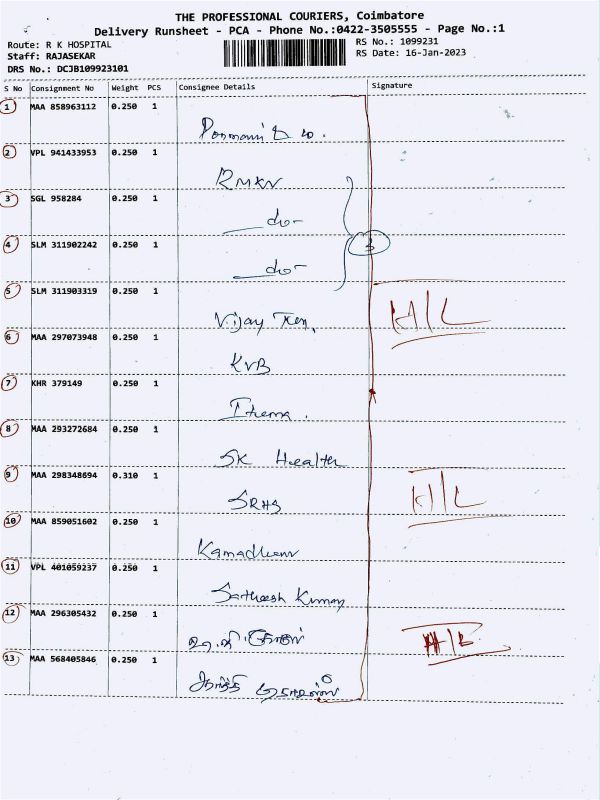 THE PROFESSIONAL COURIERS, Coimbatore
Delivery Runsheet - PCA - Phone No.:0422-3505555 - Page No.:1
Route: R K HOSPITAL
RS No.: 1099231
Staff: RAJASEKAR
RS Date: 16-Jan-2023
DRS No.: DCJB109923101
S No Consignment No Weight PCS Consignee Details Signature
1 MAA 858963112 0.250 1
2 VPL 941433953 0.250 1
RMKV
3 SGL 958284 0.250 1
do-
4 SLM 311902242 0.250 1
do-
5 SLM 311903319 0.250 1
Vijay
6 MAA 297073948 0.250 1
KVB
7 KHR 379149 0.250 1
8 MAA 293272684 0.250 1
SK Health
9 MAA 298348694 0.310 1
SRHS
10 MAA 859051602 0.250 1
11 VPL 401059237 0.250 1
12 MAA 296305432 0.250 1
13 MAA 568405846 0.250 1